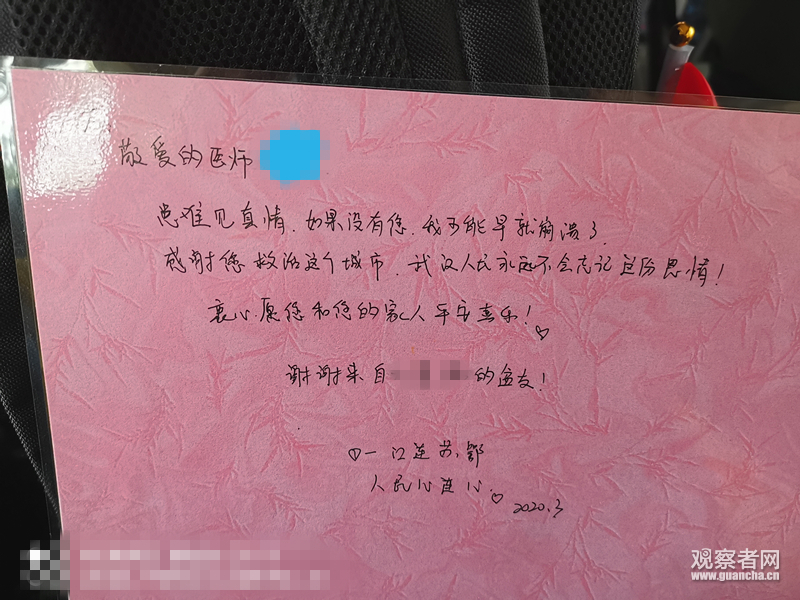 敬爱的医师
患难见真情、如果没有您、我可能早就崩溃了
感谢您救治这个城市、武汉人民永远不会忘记这份恩情！
衷心愿您和您的家人平安喜乐！♡
谢谢来自 的战友！
一江连苏鄂
人民心连心.♡
2020.3
观察者网
www.guancha.cn